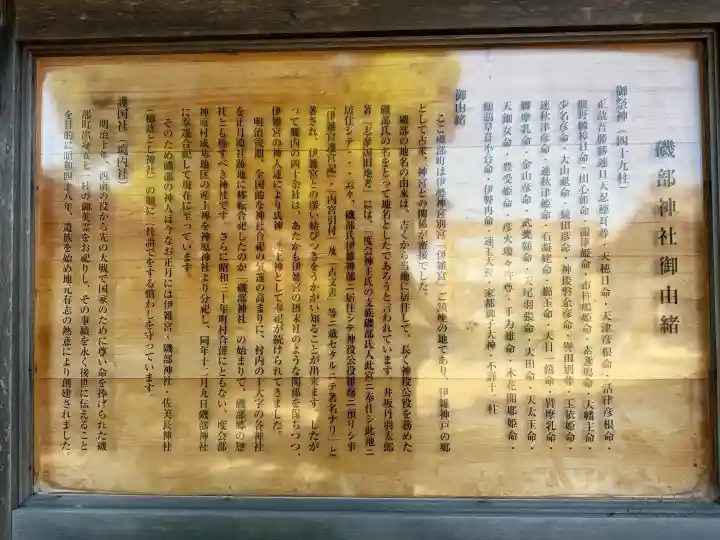 磯部神社御由緒
御祭神(四十九柱)
正哉吾勝勝速日天忍穂耳尊・天穂日命・天津彦根命・活津彦根命・
熊野櫲樟日命・田心姫命・湍津姫命・市杵嶋姫命・素戔嗚命・大幡主命・
少名彦命・大山祇命・鏡田彦命・神倭磐余彦命・譽田別尊・玉依姫命・
速秋津彦命・速秋津姫命・石凝姥命・櫛玉命・天目一箇命・質摩乳命・
躰摩乳命・金山彦命・武甕槌命・天尾羽張命・大田命・天太玉命・
天鈿女命・豊受姫命・彦火瓊々杵尊・千力雄命・木花開耶姫命・
鵜鶿草葺不合命・伊弉冉命・速玉大神・家都御子大神・不詳十二柱
御由緒
ここ磯部町は伊勢神宮別宮「伊雜宮」ご鎮座の地であり、伊雜神戸の郷
として古来、神宮との関係が密接でした。
磯部の地名の由来は、古くから当地に居住して、長く神役公役を務めた
磯部氏の名をとって地名としたであろうと言われています。井坂丹羽太郎
著「志摩国旧地考」には、「度会神主氏の支族磯部氏人此宮ニ奉仕シ此地ニ
居住シテ・・・云々、磯部氏伊雑神部ニ居住シテ神役公役雑務ニ預リシ事
「伊雑宮遷宮記」「内宮引付」及「古文書」等ニ蔵セタルニテ著名ナリ」と
著され、伊雑宮との深い結びつきをうかがい知ることが出来ます。したが
って郷内の四十余社は、あたかも伊雑宮の摂末社のような関係を保ちつつ、
伊雑宮の神人達により氏神・産土神として奉祀が続けられてきました。
明治後期、全国的な神社合祀の気運の高まりに、村内の十大字の各神社
を正月殿跡地に移転合祀したのが「磯部神社」の始まりで、磯部郷の惣
社とも称すべき神社です。さらに昭和三十年町村合併にともない、度会郡
神原村成基地区の産土神を神原神社より分祀し、同年十二月九日磯部神社
に奉遷合祀して現在に至っています。
そのため磯部の神人は今なお正月には伊雑宮・磯部神社・佐美長神社
(穂落とし神社)の順に三社詣でをする慣わしを守っています。
護国社(境内社)
明治十年、西南の役から先の大戦で国家のために尊い命を捧げられた磯
部町出身五百二柱の御英霊をお祀りし、その事績を永く後世に伝えること
を目的に昭和四十八年、遺族を始め地元有志の熱意により創建されました。